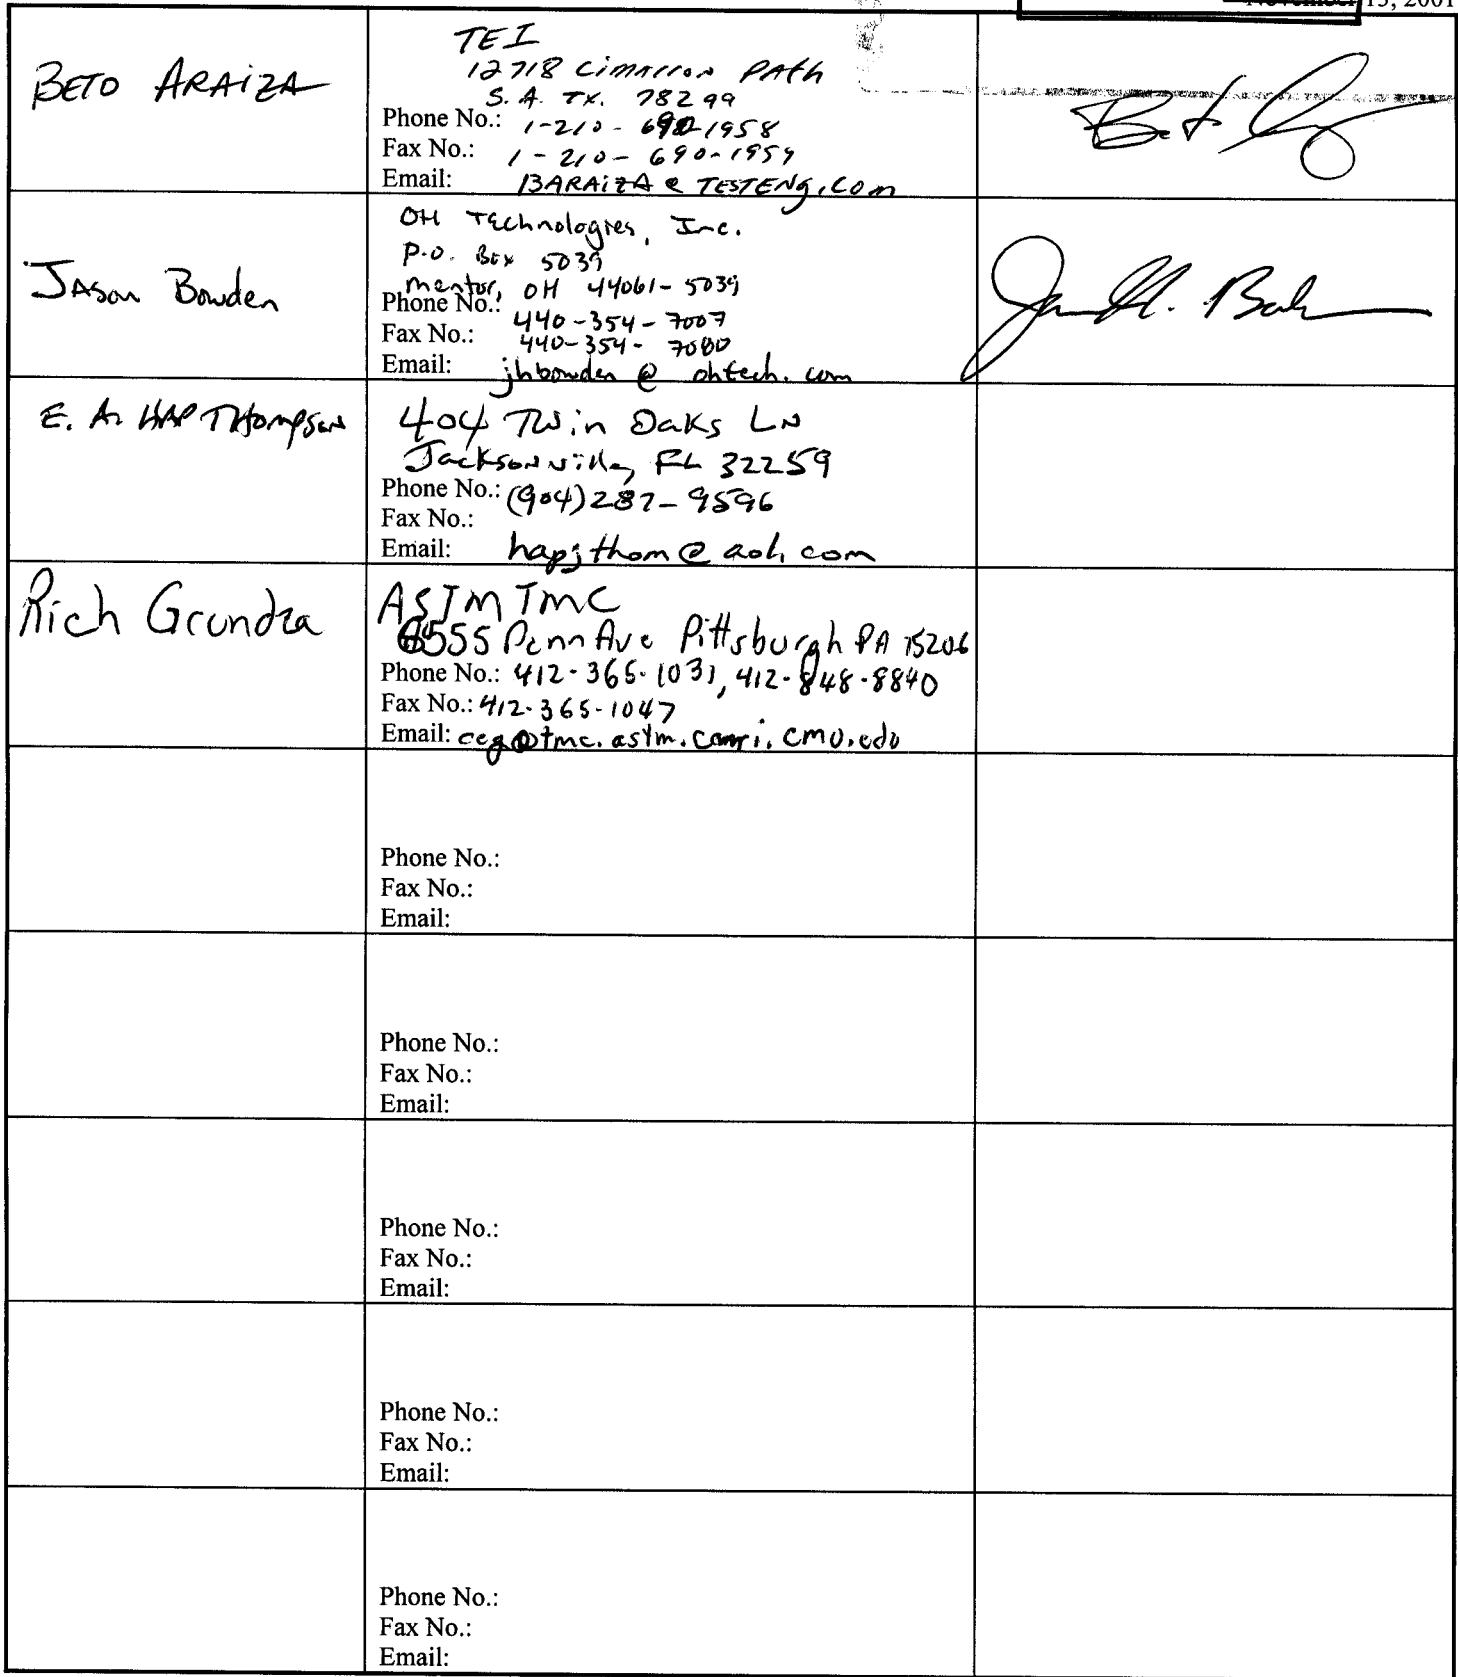 November 13, 2001
BETO ARAIZA
TEI
12718 Cimarron PAth
S.A. TX. 78299
Phone No.: 1-210-690-1958
Fax No.: 1-210-690-1959
Email: BARAIZA@TESTENg.Com
JASon Bowden
OH Technologies, Inc.
P.O. Box 5039
mentor, OH 44061-5039
Phone No.: 440-354-7007
Fax No.: 440-354-7000
Email: jhbowden @ ohtech.com
E. A. HAP THompson
404 Twin Oaks LN
Jacksonville, FL 32259
Phone No.: (904)287-9596
Fax No.:
Email: hapjthom@aol.com
Rich Grundza
ASTM TMC
6555 Penn Ave Pittsburgh PA 15206
Phone No.: 412-365-1031, 412-848-8840
Fax No.: 412-365-1047
Email: reg@tmc.astm.cmri.cmu.edu
Phone No.:
Fax No.:
Email:
Phone No.:
Fax No.:
Email:
Phone No.:
Fax No.:
Email:
Phone No.:
Fax No.:
Email:
Phone No.:
Fax No.:
Email: